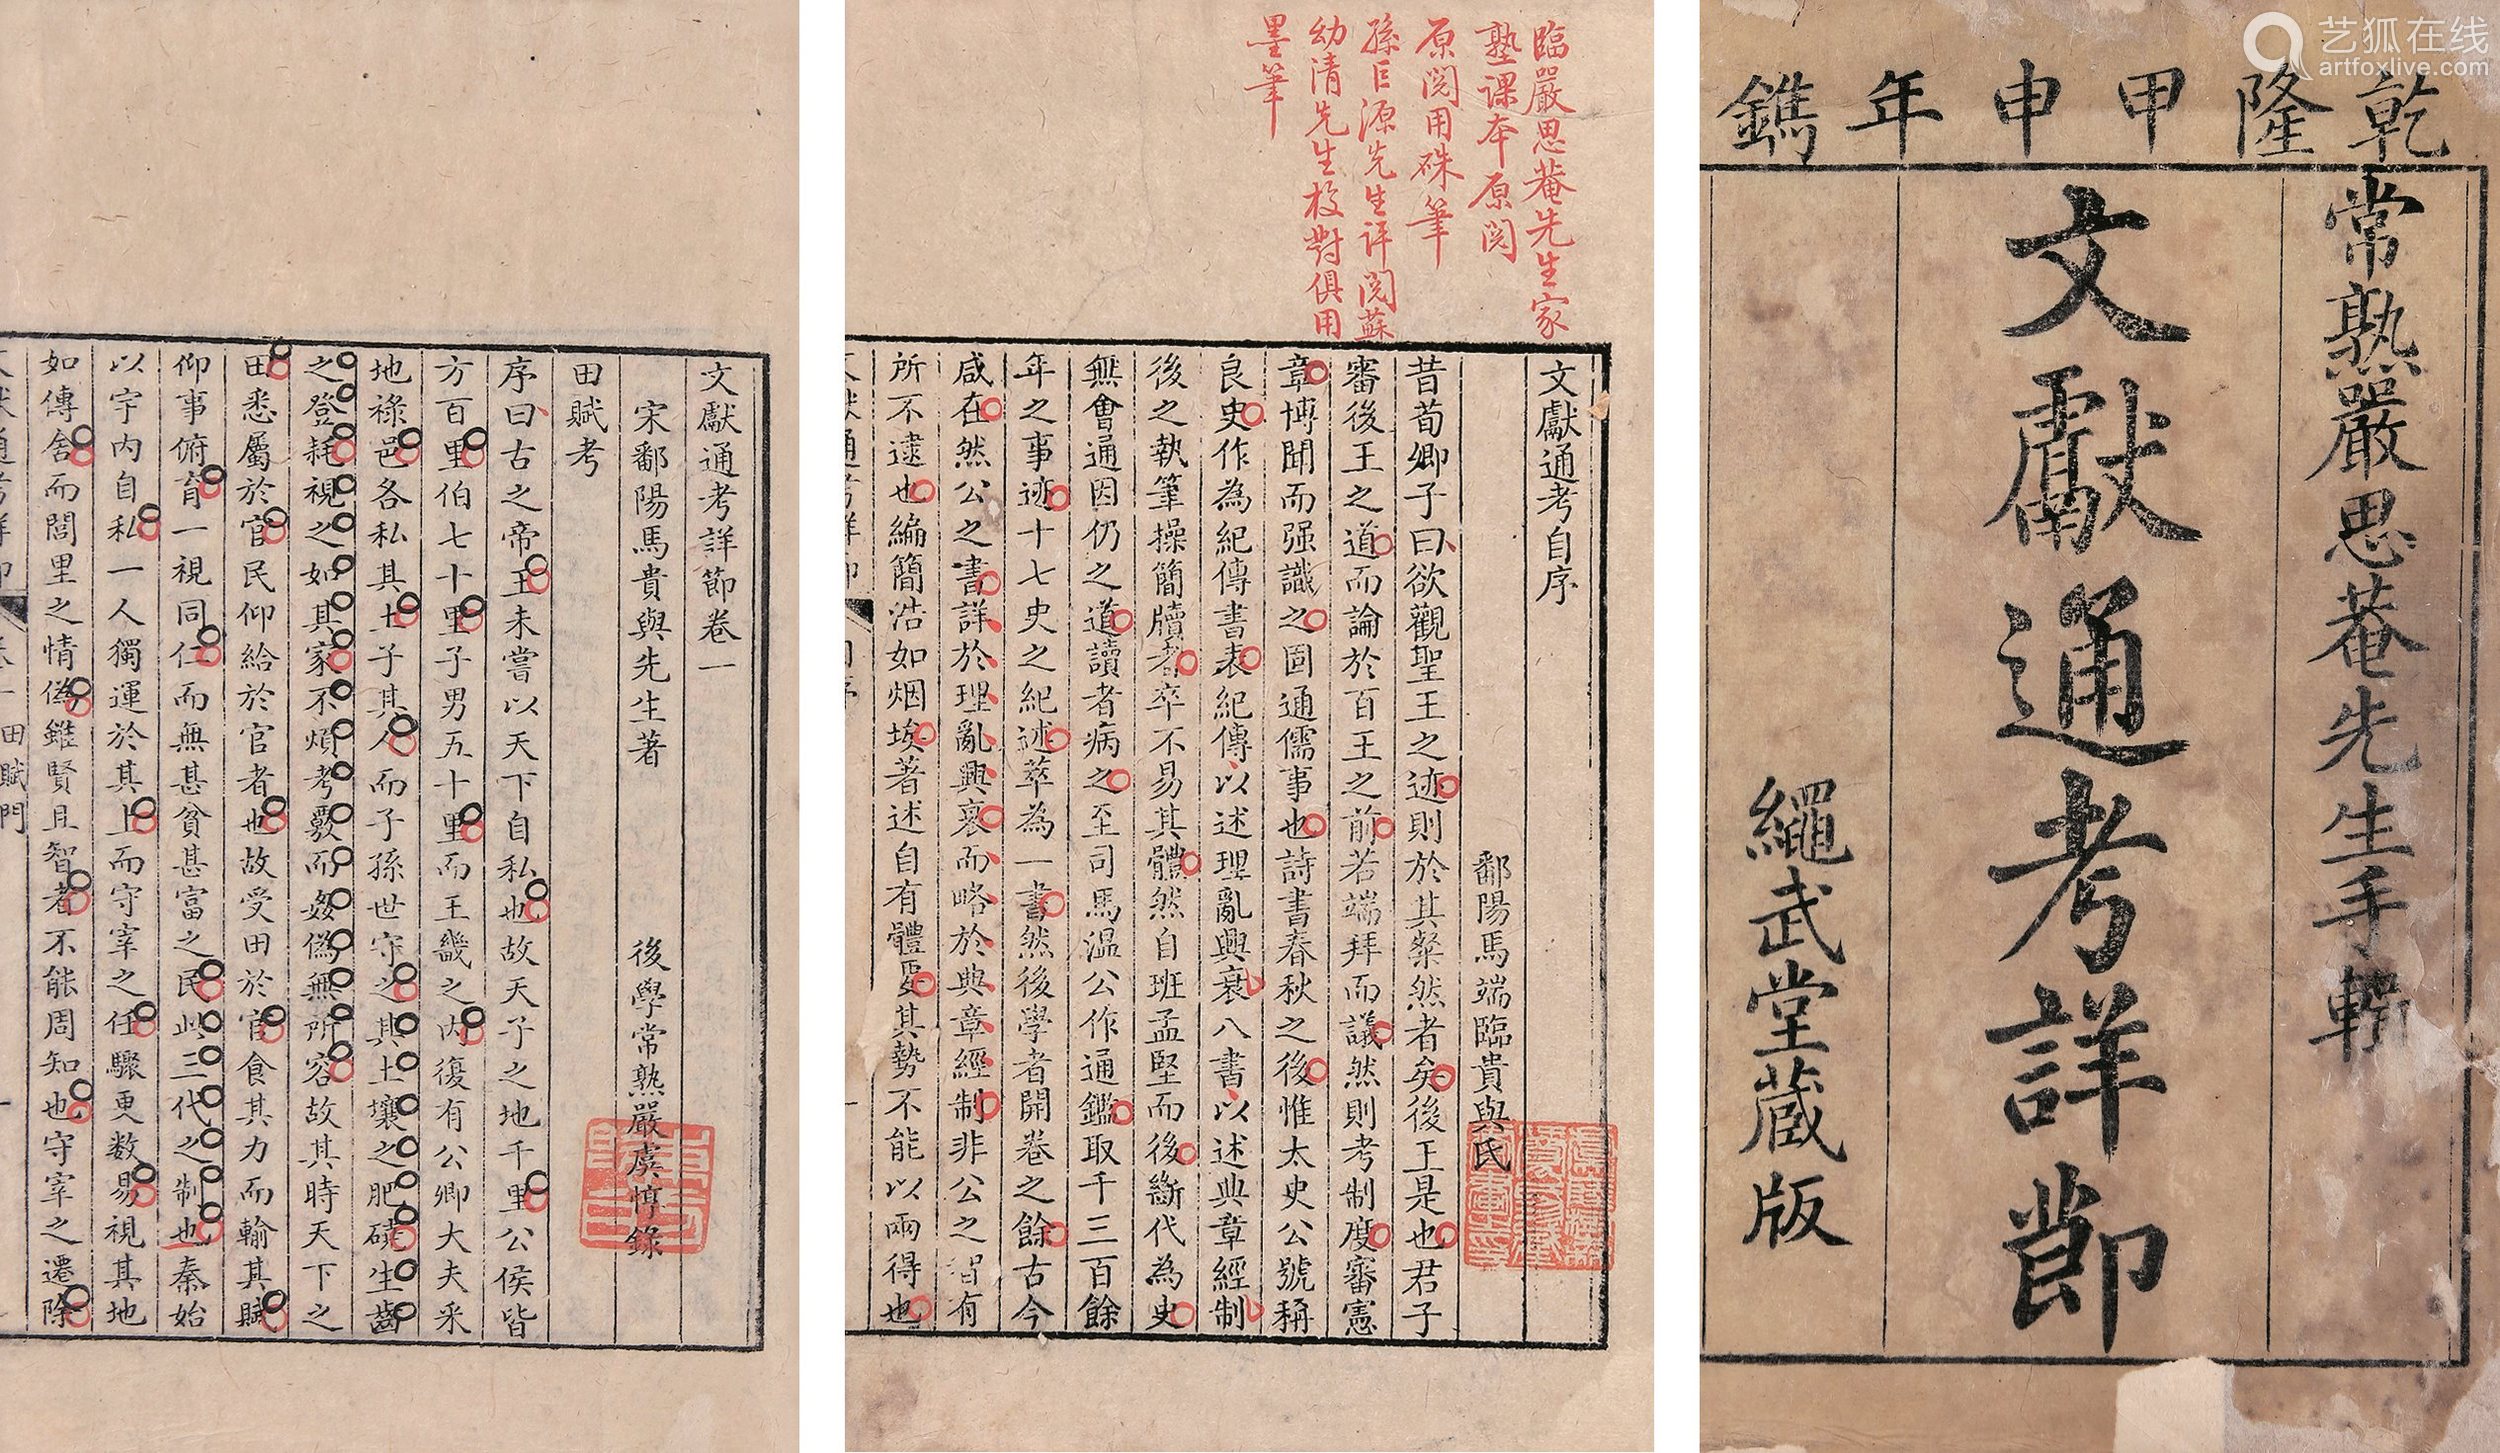 艺狐在线
artfoxlive.com
乾隆甲申年鐫
常熟嚴思菴先生手輯
文獻通考詳節
繩武堂蔵版
臨嚴思菴先生家
塾課本原閱
原閱用硃筆
孫巨源先生評閱蘇
幼清先生校對俱用
墨筆
文獻通考自序
鄱陽馬端臨貴與氏
昔荀卿子曰欲觀聖王之迹則於其粲然者矣後王是也君子
審後王之道而論於百王之前若端拜而議然則考制度審憲
章博聞而强識之固通儒事也詩書春秋之後惟太史公號稱
良史作為紀傳書表紀傳以述理亂興衰八書以述典章經制
後之執筆操簡牘者卒不易其體然自班孟堅而後斷代為史
無會通因仍之道讀者病之至司馬溫公作通鑑取千三百餘
年之事迹十七史之紀述萃為一書然後學者開卷之餘古今
咸在然公之書詳於理亂興衰而略於典章經制非公之智有
所不逮也編簡浩如烟埃著述自有體要其勢不能以兩得也
文獻通考詳節卷一
宋鄱陽馬貴與先生著 後學常熟嚴虞惇錄
田賦考
序曰古之帝王未嘗以天下自私也故天子之地千里公侯皆
方百里伯七十里子男五十里而王畿之内復有公卿大夫采
地祿邑各私其土子其人而子孫世守之其土壤之肥磽生齒
之登耗視之如其家不煩考覈而姦偽無所容故其時天下之
田悉屬於官民仰給於官者也故受田於官食其力而輸其賦
仰事俯育一視同仁而無甚貧甚富之民此三代之制也秦始
以宇内自私一人獨運於其上而守宰之任驟更数易視其地
如傳舍而閭里之情偽雖賢且智者不能周知也守宰之遷除
田賦門